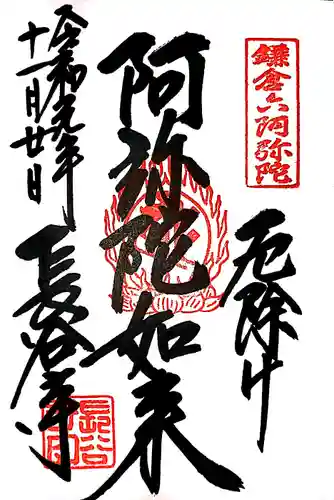 鎌倉六阿弥陀
厄除け
阿弥陀如来
令和元年
十一月廿日
長谷寺